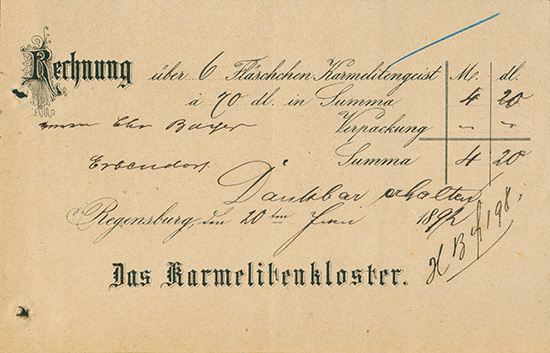 Rechnung über 6 Fläschchen Karmelitengeist M. dl.
à 70 dl. in Summa 4 20
Herrn Ebr Bayer Verpackung " "
Erbendorf Summa 4 20
Dankbar erhalten
Regensburg, den 20 ten 1892
Das Karmelitenkloster.
H B f 198